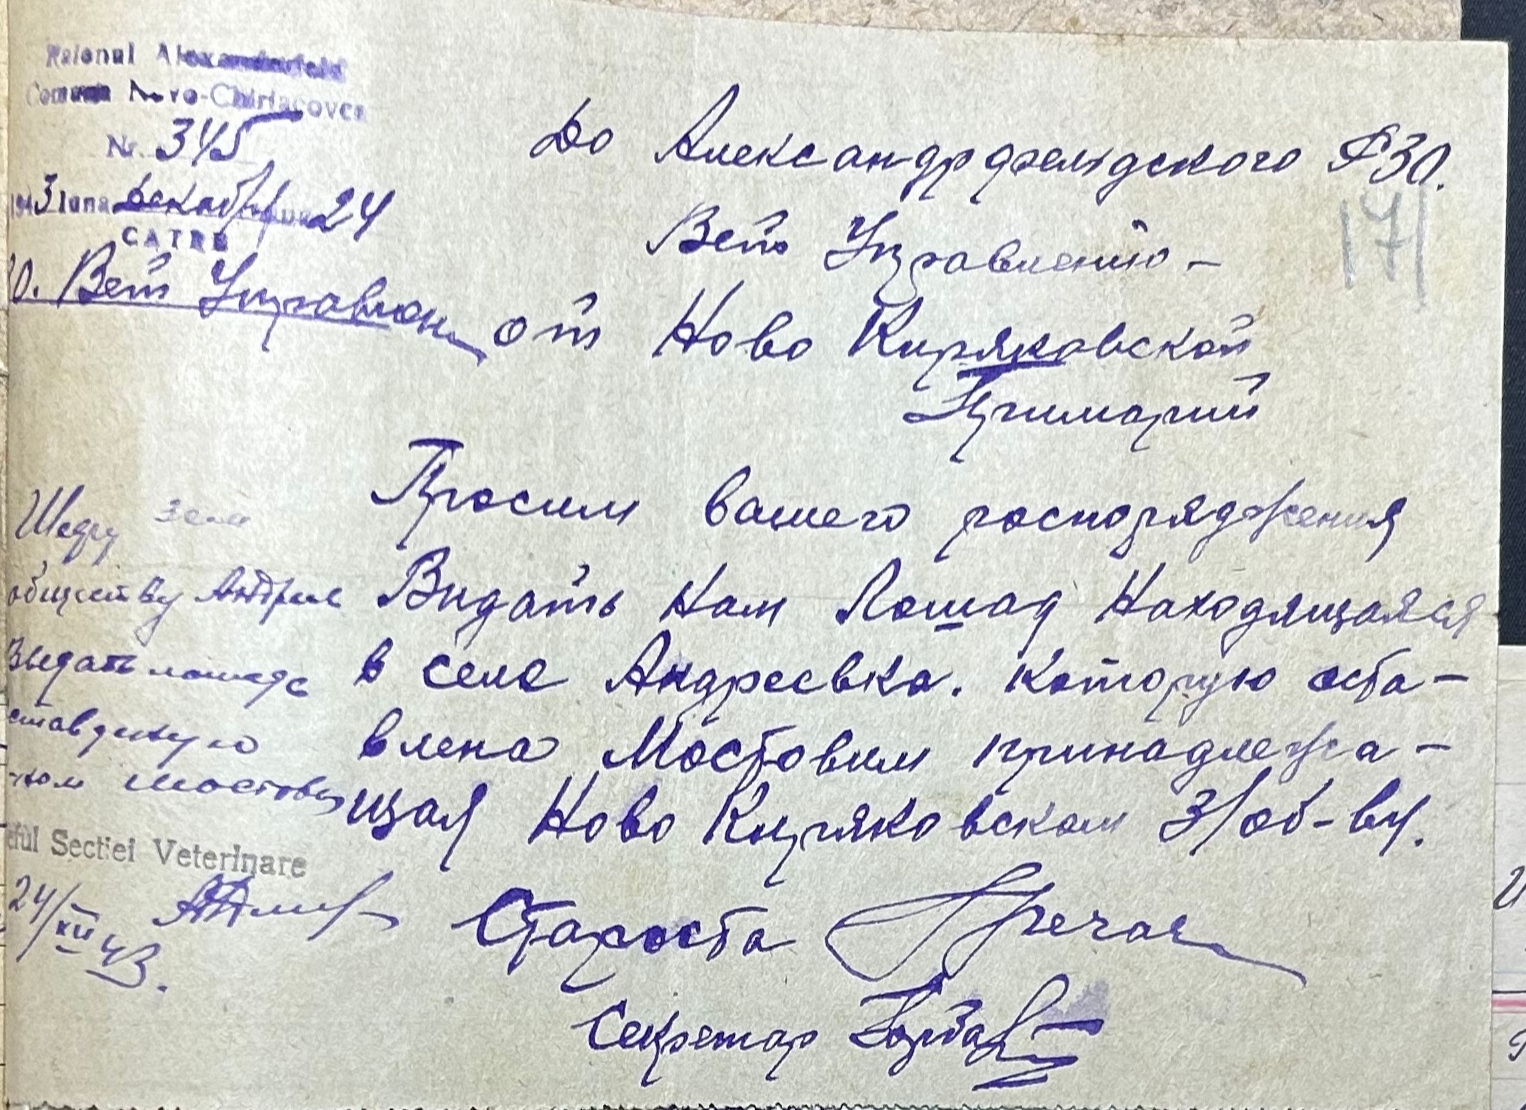 Raionul Alexanderfeld
Comuna Novo-Chiriacovca
Nr. 345
1943 luna декабря ziua 24
CATRE
О. Вет Управлен
До Александрфельдского РЗО.
Вет Управлению –
от Ново Киряковской
Примарии
171
Просим вашего роспорядження
Видать Нам Лошад Находящаяся
в села Андреевка. Которую оста-
влена Мостовим принадлежа-
щая Ново Киряковском З/об-ву.
Староста Гречан
Секретар
зем
обществу Андрее
Выдать лошадь
ставленую
ном Мостовы
eful Sectiei Veterinare
24/XII 43.